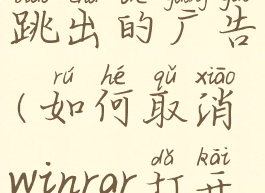 跳出的广告
rú hé qǔ xiāo
(如何取消
dǎ kāi
winrar打开